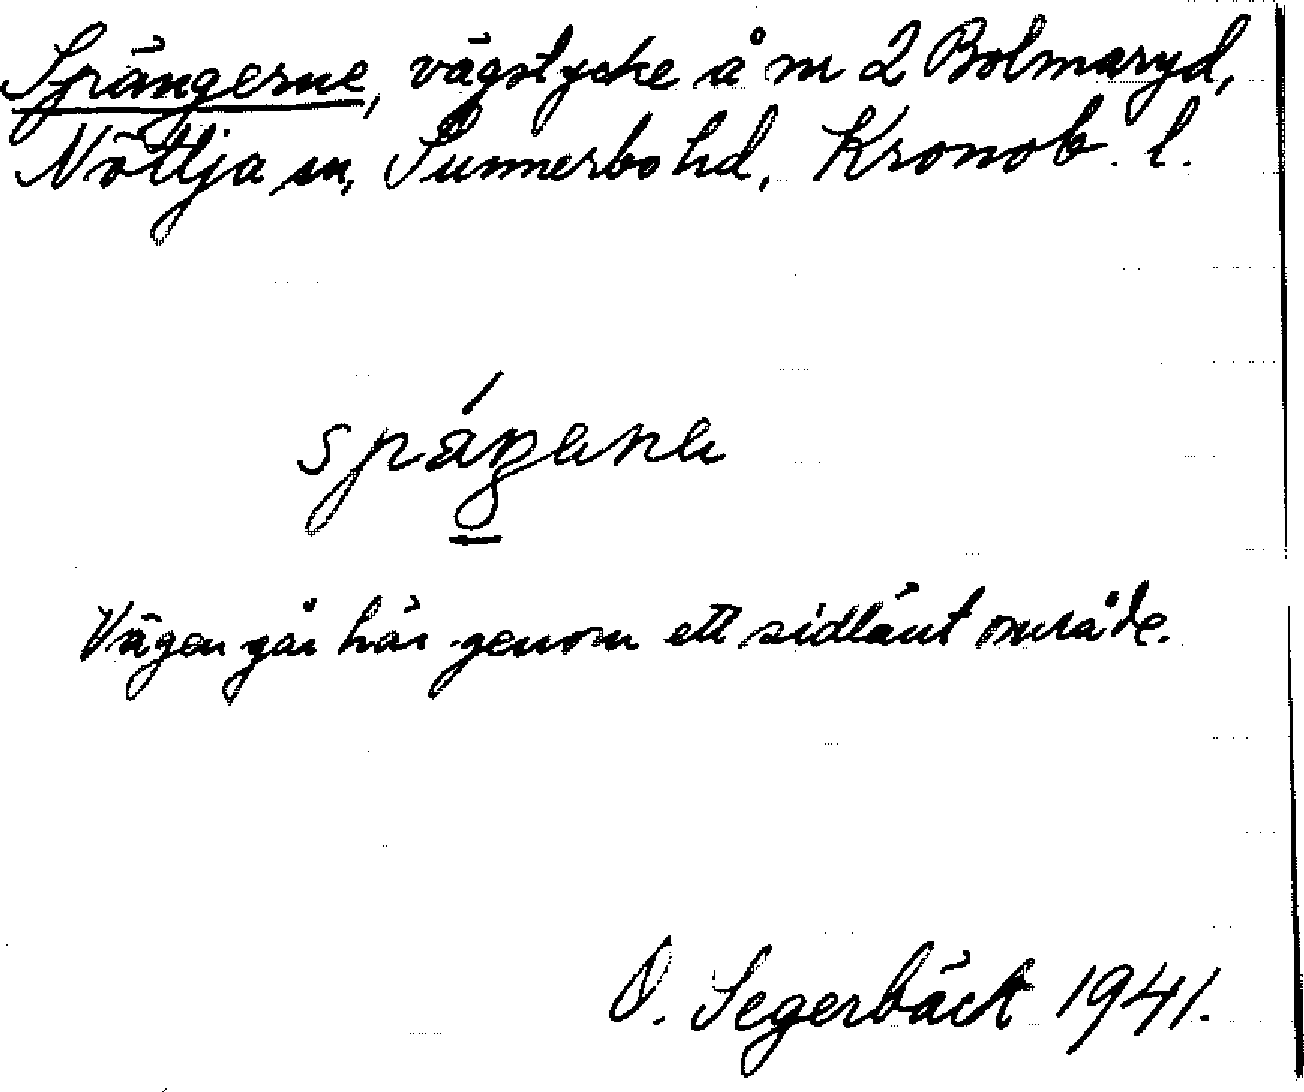 Spångerne, vägstycke å m 2 Bolmaryd,
Nöttja sn, Sunnerbo hd, Kronob. l.
spáŋena
Vägen går här genom ett sidlänt område.
O. Segerbäck 1941.